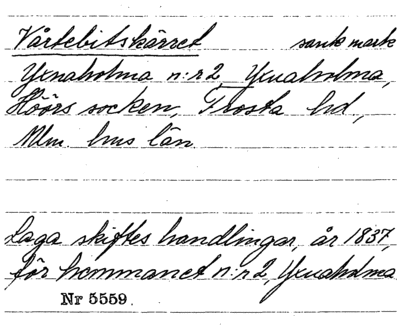 Vårtebitskärret sank mark
Yxnaholma n:r 2, Yxnaholma,
Höörs socken, Frosta hd,
Mlm. hus län.
Laga skiftes handlingar, år 1837,
för hemmanet n:r 2, Yxnaholma
Nr 5559.